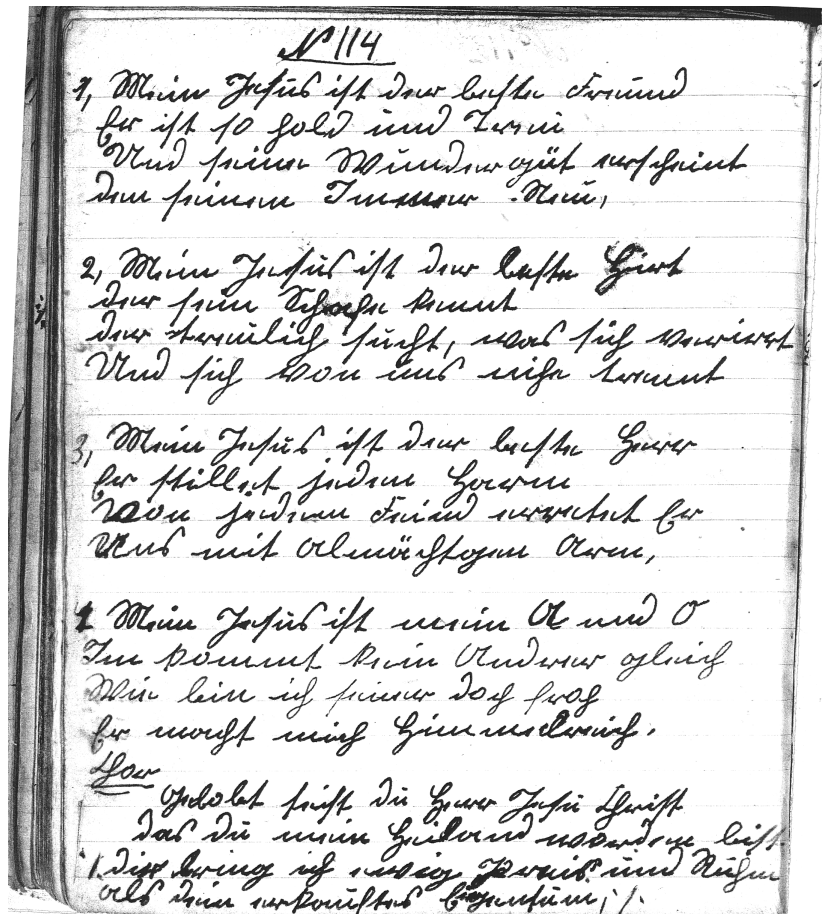 N 114
1, Mein Jesus ist der beste Freund
Er ist so hold und Treu
Und seine Wundergüt erscheint
den seinen Immer Neu,
2, Mein Jesus ist der beste Hirt
der sein Schafe kennt
der treulich sucht, was sich verirrt
Und sich von uns nihe trennt
3, Mein Jesus ist der beste Herr
Er stillet jeden Harm
Von jedem Feind erretet Er
Uns mit Almächtgen Arm,
4 Mein Jesus ist mein A und O
Im kommt kein Andrer gleich
Wie bin ich seiner doch froh
Er macht mich Himmelreich.
Chor
Gelobt seist du Herr Jesu Christ
das du mein Heiland worden bist
/: dir bring ich ewig Preis und Ruhm
als dein erkauftes Eigentum, :/.